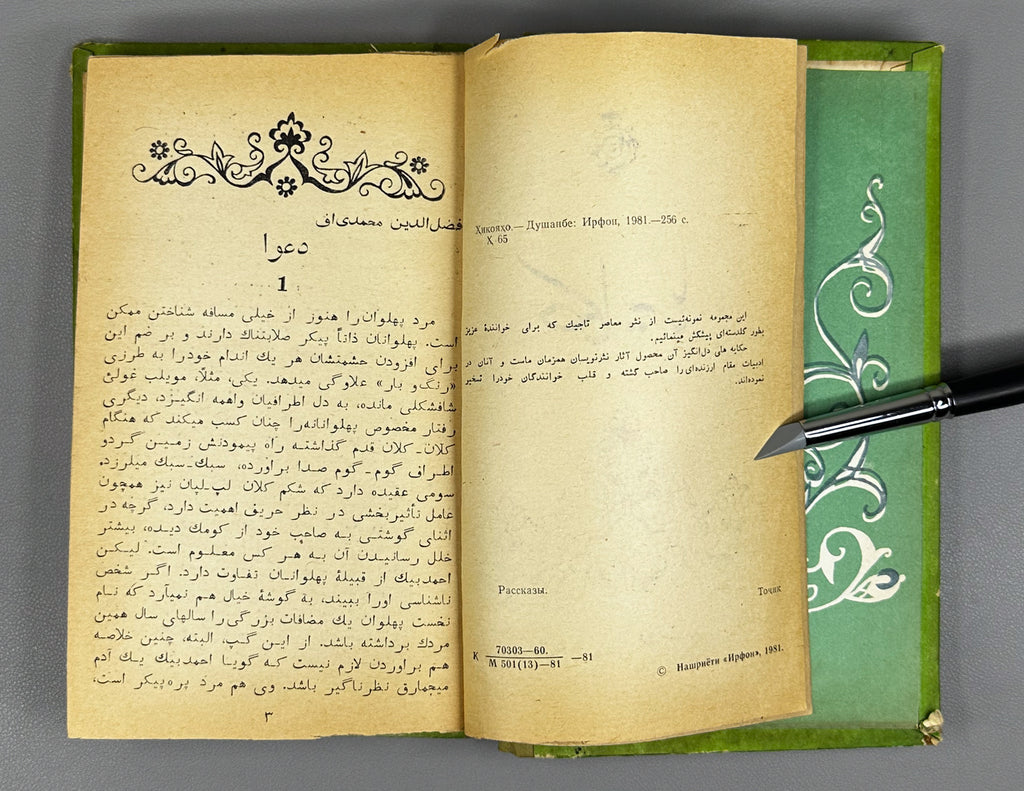 Ҳикояҳо.— Душанбе: Ирфон, 1981.—256 с.
Ҳ 65
این مجموعه نمونه‌ئیست از نثر معاصر تاجیك که برای خوانندهٔ عزیز
بطور گلدسته‌ای پیشکش مینمائیم.
حکایه های دل‌انگیز آن محصول آثار نثرنویسان همزمان ماست و آنان در
ادبیات مقام ارزنده‌ای‌را صاحب گشته و قلب خوانندگان خودرا تسخیر
نموده‌اند.
Рассказы. Тоҷик
К 70303—60. —81
М 501(13)—81
© Нашриёти «Ирфон», 1981.
فضل‌الدین محمدی‌اف
دعوا
1
مرد پهلوان‌را هنوز از خیلی مسافه شناختن ممکن
است. پهلوانان ذاتاً پیکر صلابتناك دارند و بر ضم این
برای افزودن حشمتشان هر یك اندام خودرا به طرزی
«رنگ‌و بار» علاوگی میدهد. یکی، مثلاً، مویلب غولئ
شافشکلی مانده، به دل اطرافیان واهمه انگیـزد، دیگری
رفتار مخصوص پهلوانانه‌را چنان کسب میکند که هنگام
کلان-کلان قدم گذاشتـه راه پیمودنش زمیـن گـردو
اطـراف گوم-گوم صـدا براورده، سبك-سبك میلرزد.
سومی عقیده دارد که شکم کلان لپ-لپان نیز همچون
عامل تأثیربخشی در نظر حریف اهمیت دارد، گرچه در
اثنای گوشتـی بـه صاحب خود از کومك دیـده، بیشتر
خلل رسانیـدن آن بـه هـر کس معلـوم است. لیـکـن
احمدبیك از قبیلهٔ پهلوانـان تفاوت دارد. اگـر شخص
ناشناسی اورا ببیند، به گوشهٔ خیال هـم نمیآرد که نـام
نخست پهلوان یك مضافات بزرگی‌را سالهای سال همین
مردك برداشته باشد. از ایـن گـپ، البته، چنین خلاصه
هـم براوردن لازم نیست کـه گویـا احمدبیـك یـك آدم
میجمارق نظرناگیر باشد. وی هم مرد پره‌پیکر است،
٣